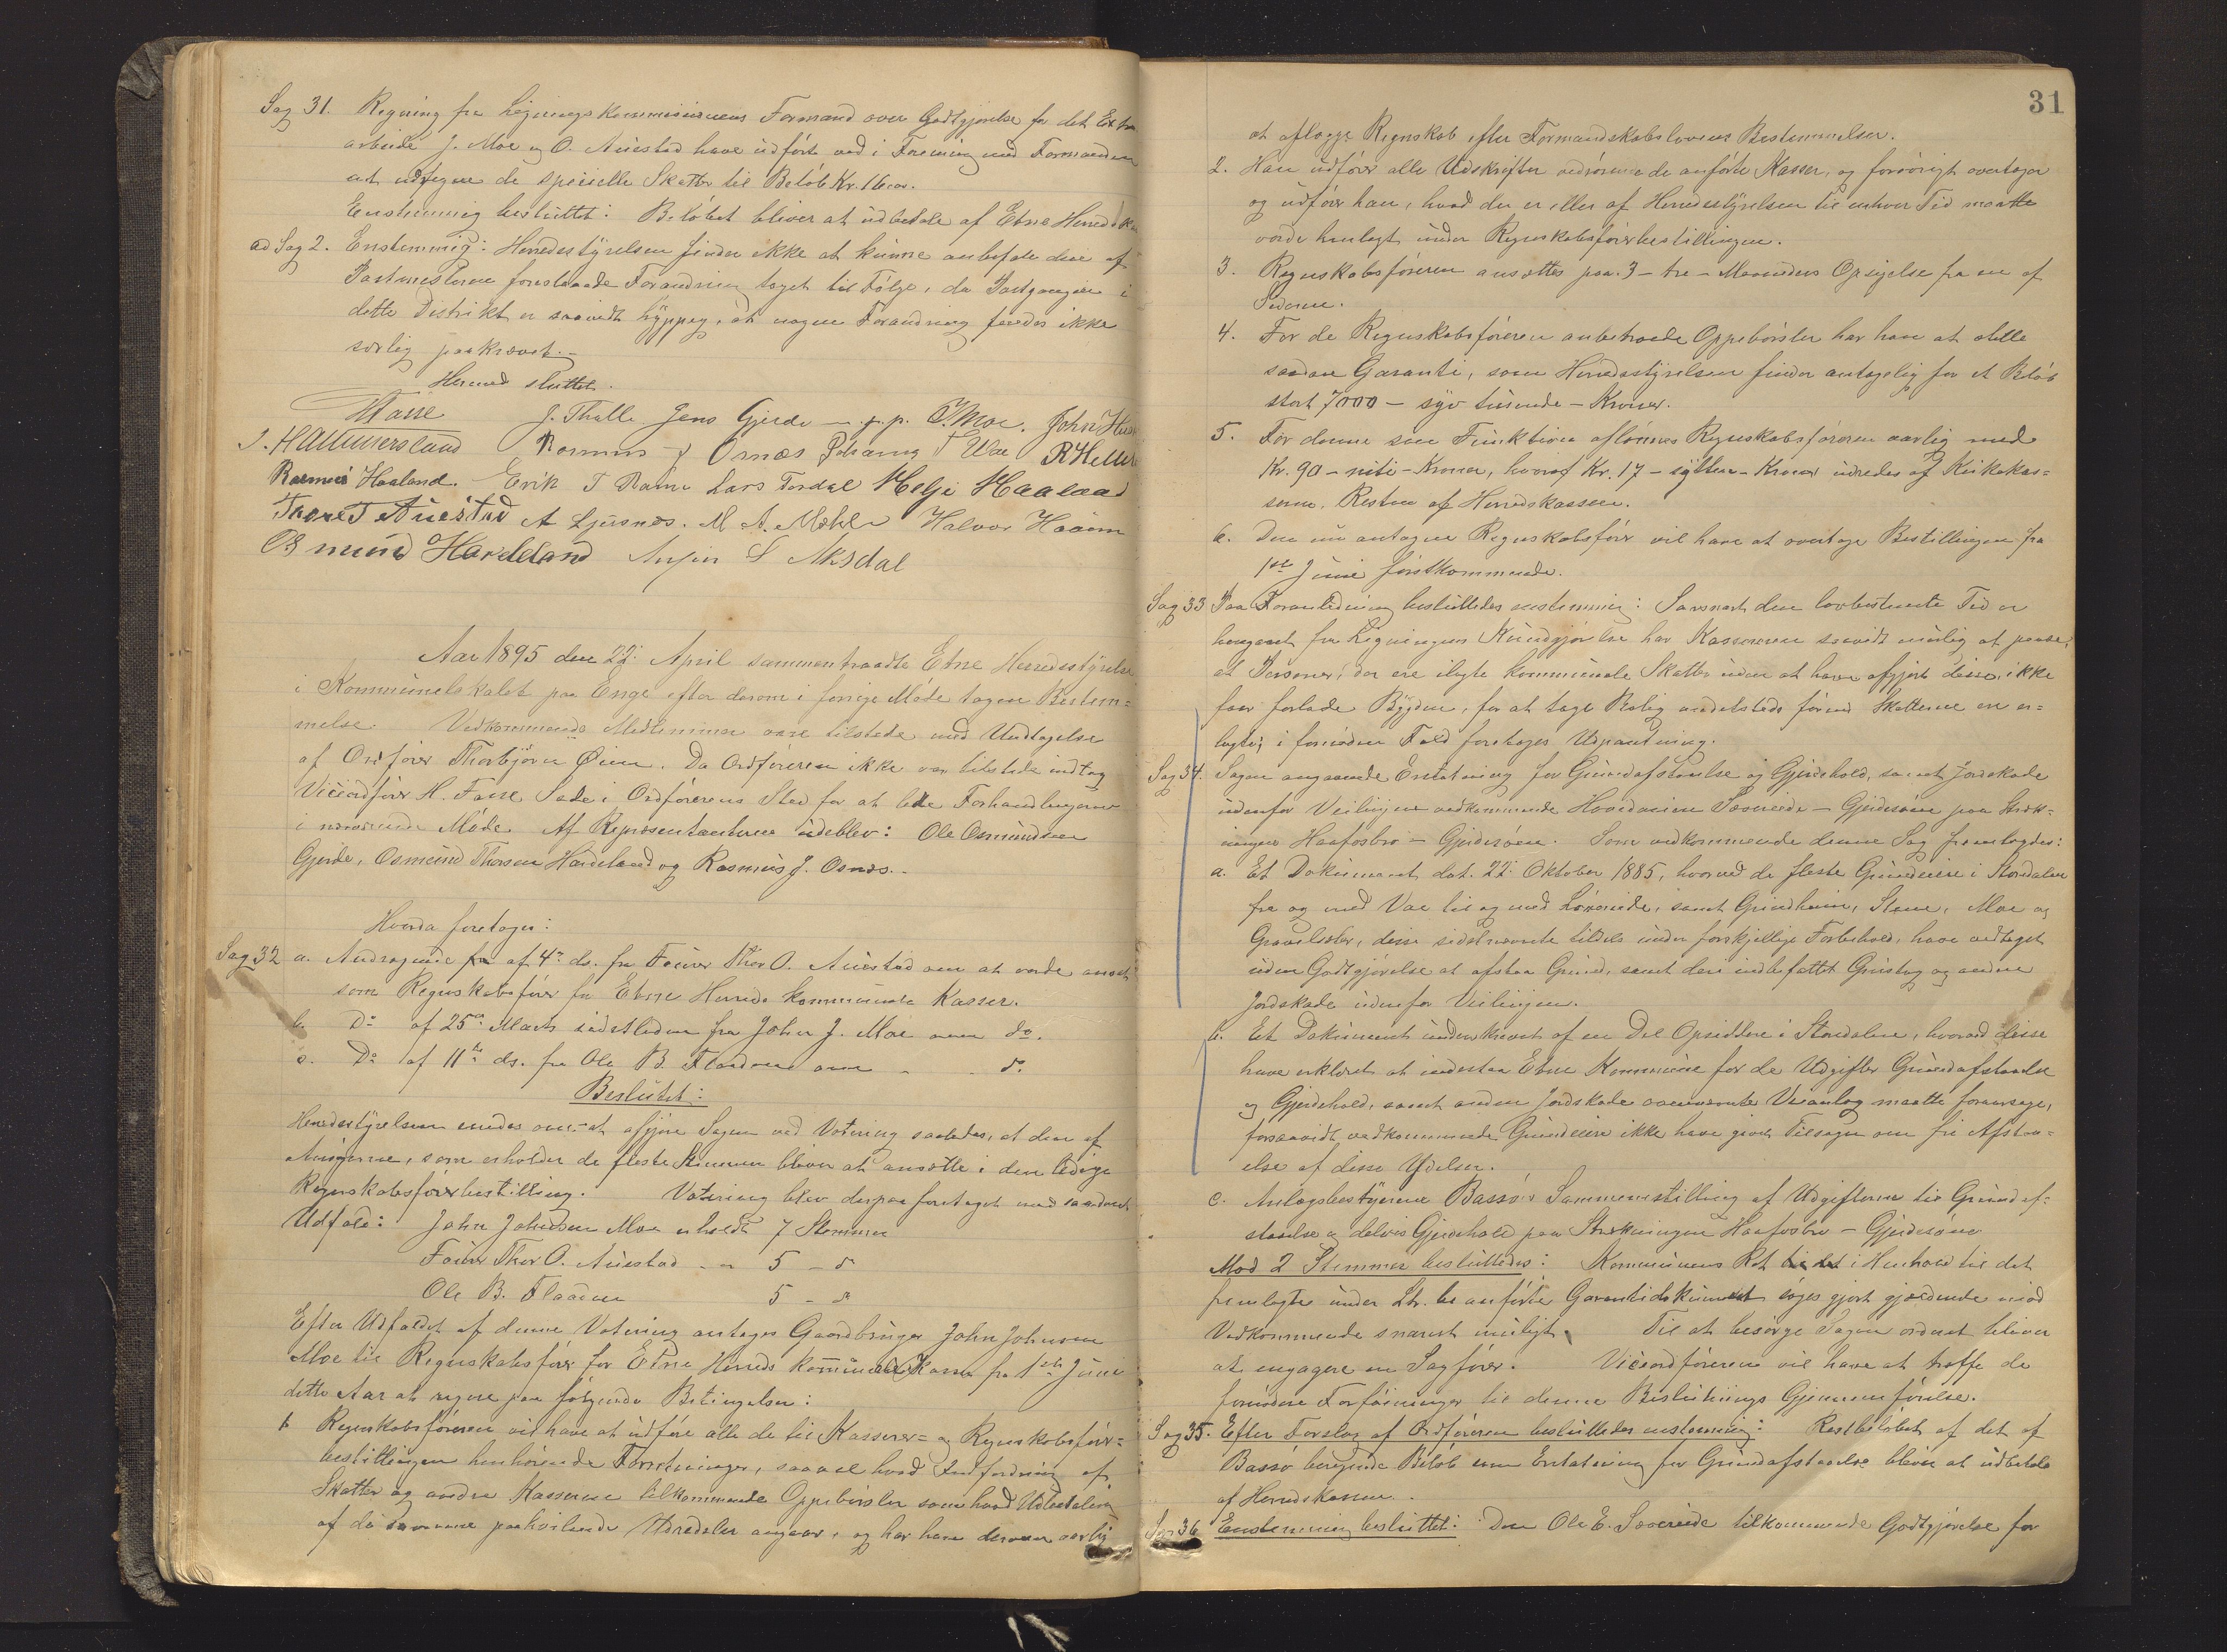 Sag 31. Regning fra Ligningskommissionens Formand over Godtgjørelse for det Extra
arbeide J. Moe og O. Auestad have udført ved i Forening med Formanden
at udregne de specielle Skatter til Beløb Kr. 16.00.
Enstemmig besluttet: Beløbet bliver at udbetale af Etne Herredsk
ad Sag 2. Enstemmig: Herredsstyrelsen finder ikke at kunne anbefale den af
Postmesteren foreslaaede Forandring taget til Følge, da Postgangen i
dette Distrikt er saavidt hyppig, at nogen Forandring findes ikke
særlig paakrævet.-
Hermed sluttet.
HFaire J. Thulle Jens Gjerde - p.p. O. Moe. John Hus
S. HAmmersland Rasmus J Ornæs Johannes T Wae R Helle
Rasmus Haaland. Erik T Rame Lars Tordal Helje Haaland
Thore T Auestad A Ljusnes. M A. Mæhle Halvor Haaem
Osmund Hardeland Anfin S Aksdal
Aar 1895 den 22: April sammentraadte Etne Herredsstyrelse
i Kommunelokalet paa Enge efter derom i forrige Møde tagen Bestem=
melse. Vedkommende Medlemmer vare tilstede med Undtagelse
af Ordfører Thorbjørn Øien. Da Ordføreren ikke var tilstede indtog
Viceordfører H. Faise Sæde i Ordførerens Sted for at lede Forhandlingerne
i nærværende Møde. Af Repræsentanterne udeblev: Ole Osmundsen
Gjerde, Osmund Thorsen Hardeland og Rasmus J. Ornæs.-
Hvorda foretoges:
Sag 32 a. Andragende fra af 4de ds. fra Fourer Thor O. Auestad om at vorde ansat
som Regnskabsfører for Etne Herreds kommunale Kasser.
b. Do af 25de Marts sidstleden fra John J. Moe om do.
c. Do af 11te ds. fra Ole B. Flaaden om - do
Beslutet:
Herredsstyrelsen enedes om at afgjøre Sagen ved Votering saaledes, at den af
Ansøgerne, som erholder de fleste Stemmer bliver at ansætte i den ledige
Regnskabsførerbestilling. Votering blev derpaa foretaget med saadant
Udfald: John Johnsen Moe erholdt 7 Stemmer
Fourer Thor O. Auestad - " 5 - do
Ole B. Flaaden 5 - do
Efter Udfaldet af denne Votering antages Gaardbruger John Johnsen
Moe til Regnskabsfører for Etne Herreds kommunale Kasser fra 1ste Juni
dette Aar at regne paa følgende Betingelser:
1. Regnskabsføreren vil have at udføre alle de til Kasserer= og Regnskabsfører=
bestillingen henhørende Forretninger, saavel hvad Indfordring af
Skatter og andre Kasserne tilkommende Oppebørsler som hvad Udbetaling
af de samme paahvilende Udredsler angaar, og har han derover aarlig
31
at aflægge Regnskab efter Formandskabslovens Bestemmelser.
2. Han udfører alle Udskrifter vedrørende de anførte Kasser, og forøvrigt overtager
og udfører han, hvad der er eller af Herredsstyrelsen til enhver Tid maatte
vorde henlagt under Regnskabsførerbestillingen.
3. Regnskabsføreren ansættes paa 3 - tre - Maaneders Opsigelse fra en af
Siderne.
4. For de Regnskabsføreren anbetroede Oppebørsler har han at stille
saadan Garanti, som Herredsstyrelsen finder antagelig for et Beløb
stort 7000 - syv tusinde - Kroner.
5. For denne sin Funktion aflønnes Regnskabsføreren aarlig med
Kr. 90 - niti - Kroner, hvoraf Kr. 17 - sytten - Kroner udredes af Kirkekas=
serne. Resten af Herredskassen.
6. Den nu antagne Regnskabsfører vil have at overtage Bestillingen fra
1ste Juni førstkommende.
Sag 33 Paa Foranledning besluttedes enstemmig: Saasnart den lovbestemte Tid er
hengaaet fra Ligningens Kundgjørelse har Kassereren saavidt mulig at paase,
at Personer, der ere ilagte kommunale Skatter uden at have afgjort disse, ikke
faar forlade Bygden, for at tage Bolig andetsteds førend Skatterne ere er=
lagte; i fornøden Fald foretages Udpantning.
Sag 34. Sagen angaaende Erstatning for Grundafstaaelse og Gjerdehold, samt Jordskade
udenfor Veilinjen vedkommende Hovedveien Sævereide - Gjerdesøen paa Stræk=
ningen Haafosbro - Gjerdesøen. Som vedkommende denne Sag fremlagdes:
a. Et Dokument dat. 22: Oktober 1885, hvorved de fleste Grundeiere i Stordalen
fra og med Vae til og med Løvereide, samt Grindheim, Stene, Moe og
Gravelsæter, disse sidstnævnte tildels under forskjellige Forbehold, have vedtaget
uden Godtgjørelse at afstaa Grund, samt deri indbefattet Grustag og anden
Jordskade udenfor Veilinjen.
b. Et Dokument underskrevet af en Del Opsiddere i Stordalen, hvorved disse
have erklæret at indestaa Etne Kommune for de Udgifter Grundafstaaelse
og Gjerdehold, samt anden Jordskade ovennævnte Veianlæg maatte foraarsage,
forsaavidt vedkommende Grundeiere ikke have givet Tilsagn om fri Afstaa=
else af disse Ydelser.
c. Anlægsbestyrerne Bassøs Sammenstilling af Udgifterne til Grundaf=
staaelse og delvis Gjerdehold paa Strækningen Haafosbro - Gjerdesøen
Mod 2 Stemmer besluttedes: Kommunens Ret i Henhold til det
fremlagte under Ltr. b anførte Garantidokument søges gjort gjældende mod
Vedkommende snarest muligt. Til at besørge Sagen ordnet bliver
at engagere en Sagfører. Viceordføreren vil have at træffe de
fornødne Forføininger til denne Beslutnings Gjennemførelse.
Sag 35. Efter Forslag af Ordføreren besluttedes enstemmig: Restbeløbet af det af
Bassø beregnede Beløb som Erstatning for Grundafstaaelse bliver at udbetale
af Herredskassen.
Sag 36 Enstemmig besluttet: Den Ole E. Sævereide tilkommende Godtgjørelse for